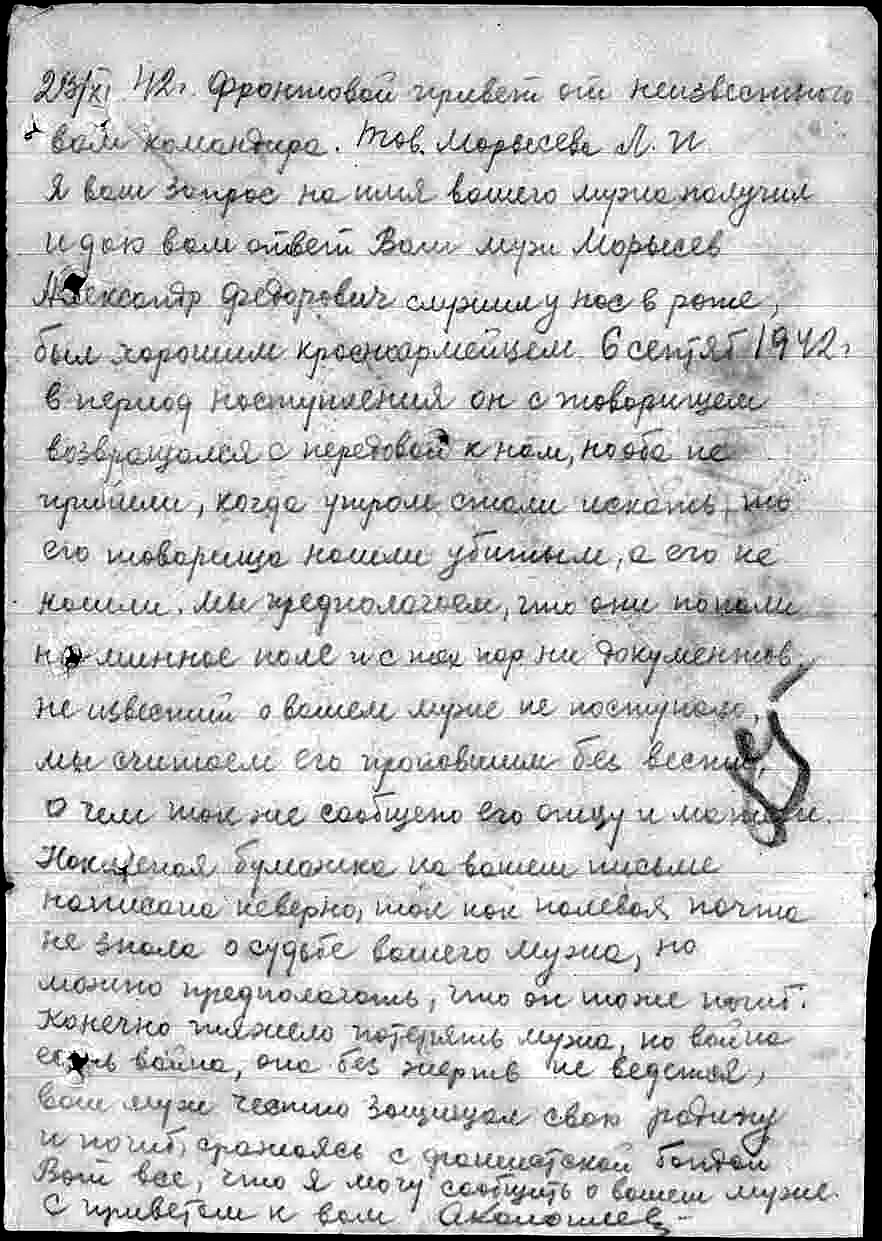 23/XI 42г. Фронтовой привет от неизвестного
вам командира. Тов. Морысева Л. И.
Я ваш запрос на имя вашего мужа получил
и даю вам ответ Ваш муж Морысев
Александр Федорович служил у нас в роте,
был хорошим красноармейцем. 6 сентяб 1942г
в период наступления он с товарищем
возвращался с передовой к нам, но оба не
пришли, когда утром стали искать, то
его товарища нашли убитым, а его не
нашли. Мы предполагаем, что они попали
на минное поле и с тех пор ни документов,
не известий о вашем муже не поступало,
мы считаем его пропавшим без вести,
о чем так же сообщено его отцу и матери.
Наклееная бумажка на вашем письме
написана неверно, так как полевая почта
не знала о судьбе вашего мужа, но
можно предполагать, что он тоже погиб.
Конечно тяжело потерять мужа, но война
есть война, она без жертв не ведется,
ваш муж честно защищал свою родину
и погиб, сражаясь с фашистской бандой
Вот все, что я могу сообщить о вашем муже.
С приветом к вам